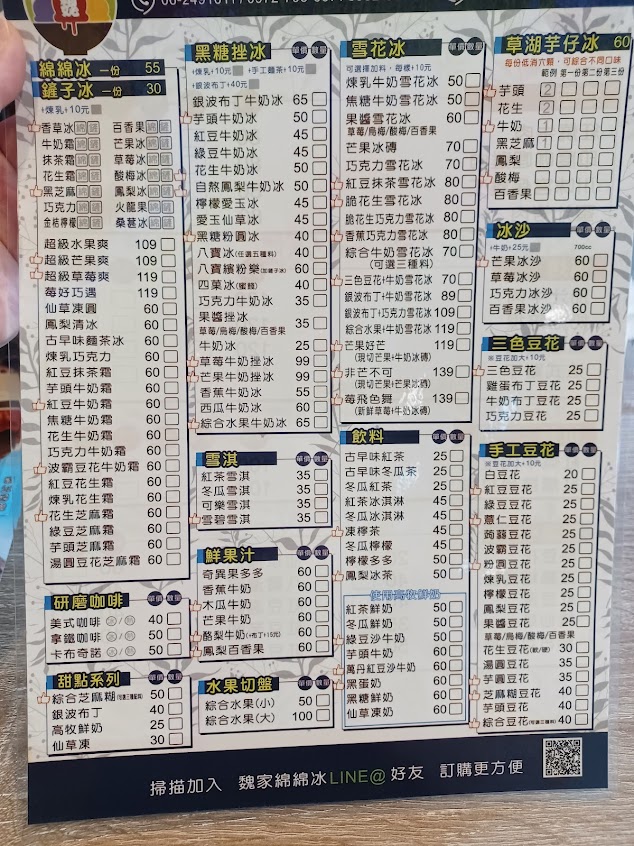 綿綿冰 一份 55
鏟子冰 一份 30
+煉乳+10元
香草冰 綿 鏟 百香果 綿 鏟
牛奶霜 綿 鏟 芒果冰 綿 鏟
抹茶霜 綿 鏟 草莓冰 綿 鏟
花生霜 綿 鏟 酸梅冰 綿 鏟
黑芝麻 綿 鏟 鳳梨冰 綿 鏟
巧克力 綿 鏟 火龍果 綿 鏟
金桔檸檬 綿 鏟 桑葚冰 綿 鏟
超級水果爽 109
超級芒果爽 109
超級草莓爽 119
莓好巧遇 119
仙草凍圓 60
鳳梨清冰 60
古早味麵茶冰 60
煉乳巧克力 60
紅豆抹茶霜 60
芋頭牛奶霜 60
紅豆牛奶霜 60
焦糖牛奶霜 60
花生牛奶霜 60
巧克力牛奶霜 60
波霸豆花牛奶霜 60
紅豆花生霜 60
煉乳花生霜 60
花生芝麻霜 60
綠豆芝麻霜 60
芋頭芝麻霜 60
湯圓豆花芝麻霜 60
研磨咖啡 單價 數量
美式咖啡 冰/熱 40
拿鐵咖啡 冰/熱 50
卡布奇諾 冰/熱 50
甜點系列 單價 數量
綜合芝麻糊(可選三種配料) 50
銀波布丁 40
高牧鮮奶 25
仙草凍 30
黑糖挫冰 單價 數量
+煉乳+10元 +手工麵茶+10元
+銀波布丁+40元
銀波布丁牛奶冰 65
芋頭牛奶冰 50
紅豆牛奶冰 50
綠豆牛奶冰 50
花生牛奶冰 50
自熬鳳梨牛奶冰 50
檸檬愛玉冰 45
愛玉仙草冰 45
黑糖粉圓冰 40
八寶冰(任選五種料) 40
八寶繽粉樂(加鏟子冰) 60
四菓冰(蜜餞) 40
巧克力牛奶冰 35
果醬挫冰 35
草莓/烏梅/酸梅/百香果
牛奶冰 25
草莓牛奶挫冰 99
芒果牛奶挫冰 99
香蕉牛奶冰 55
西瓜牛奶冰 60
綜合水果牛奶冰 65
雪淇 單價 數量
紅茶雪淇 35
冬瓜雪淇 35
可樂雪淇 35
雪碧雪淇 35
鮮果汁 單價 數量
奇異果多多 60
香蕉牛奶 60
木瓜牛奶 60
芒果牛奶 60
酪梨牛奶(+布丁+15元) 60
鳳梨百香果 60
水果切盤 單價 數量
綜合水果(小) 50
綜合水果(大) 100
雪花冰 單價 數量
可選擇加料，每樣+10元
煉乳牛奶雪花冰 50
焦糖牛奶雪花冰 50
果醬雪花冰 60
草莓/烏梅/酸梅/百香果
芒果冰磚 70
巧克力雪花冰 70
紅豆抹茶雪花冰 80
脆花生雪花冰 80
脆花生巧克力雪花冰 80
香蕉巧克力雪花冰 80
綜合牛奶雪花冰 70
(可選三種料)
三色豆花+牛奶雪花冰 70
銀波布丁+牛奶雪花冰 89
銀波布丁+巧克力雪花冰 109
綜合水果+牛奶雪花冰 119
芒果好芒 119
(現切芒果+牛奶冰磚)
非芒不可 139
(現切芒果+芒果冰磚)
莓飛色舞 139
(新鮮草莓+牛奶冰磚)
飲料 單價 數量
古早味紅茶 25
古早味冬瓜茶 25
冬瓜紅茶 25
紅茶冰淇淋 45
冬瓜冰淇淋 45
凍檸茶 45
冬瓜檸檬 45
檸檬多多 50
鳳梨冰茶 50
使用高牧鮮奶
紅茶鮮奶 50
冬瓜鮮奶 50
綠豆沙牛奶 50
芋頭牛奶 50
萬丹紅豆沙牛奶 50
黑蛋奶 50
黑糖鮮奶 50
仙草凍奶 50
草湖芋仔冰 60
每份低消六顆，可綜合不同口味
範例 第一份 第二份 第三份
芋頭 2
花生
牛奶 1
黑芝麻 1
鳳梨
酸梅
百香果
冰沙 單價 數量
+牛奶+25元 700cc
芒果冰沙 60
草莓冰沙 60
巧克力冰沙 60
百香果冰沙 60
三色豆花 單價 數量
※豆花加大+10元
三色豆花 25
雞蛋布丁豆花 25
牛奶布丁豆花 25
巧克力豆花 25
手工豆花 單價 數量
※豆花加大+10元
白豆花 20
紅豆豆花 25
綠豆豆花 25
薏仁豆花 25
蒟蒻豆花 25
波霸豆花 25
粉圓豆花 25
煉乳豆花 25
檸檬豆花 25
鳳梨豆花 25
果醬豆花 25
草莓/烏梅/酸梅/百香果
花生豆花(軟/硬) 30
湯圓豆花 35
芋圓豆花 35
芝麻糊豆花 40
芋頭豆花 40
綜合豆花(可選三種料) 40
掃描加入 魏家綿綿冰LINE@好友 訂購更方便